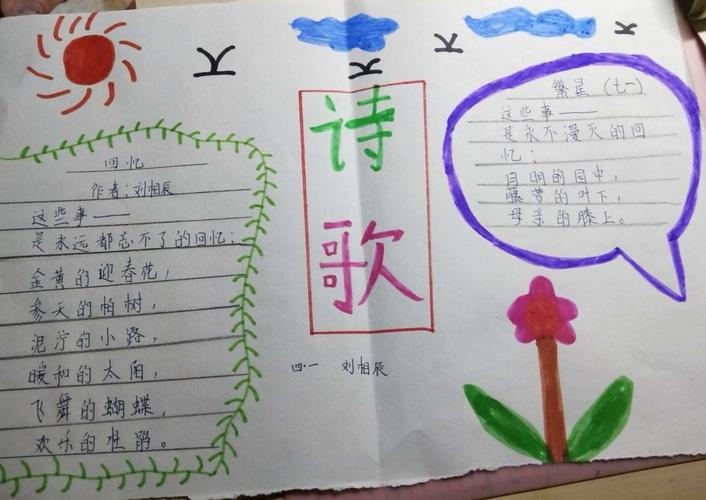 诗
歌
四·一 刘相辰
回忆
作者:刘相辰
这些事——
是永远都忘不了的回忆:
金黄的迎春花,
参天的柏树,
泥泞的小路,
暖和的太阳,
飞舞的蝴蝶,
欢乐的
繁星(七一)
这些事——
是永不漫灭的回
忆:
月明的园中,
藤萝的叶下,
母亲的膝上。